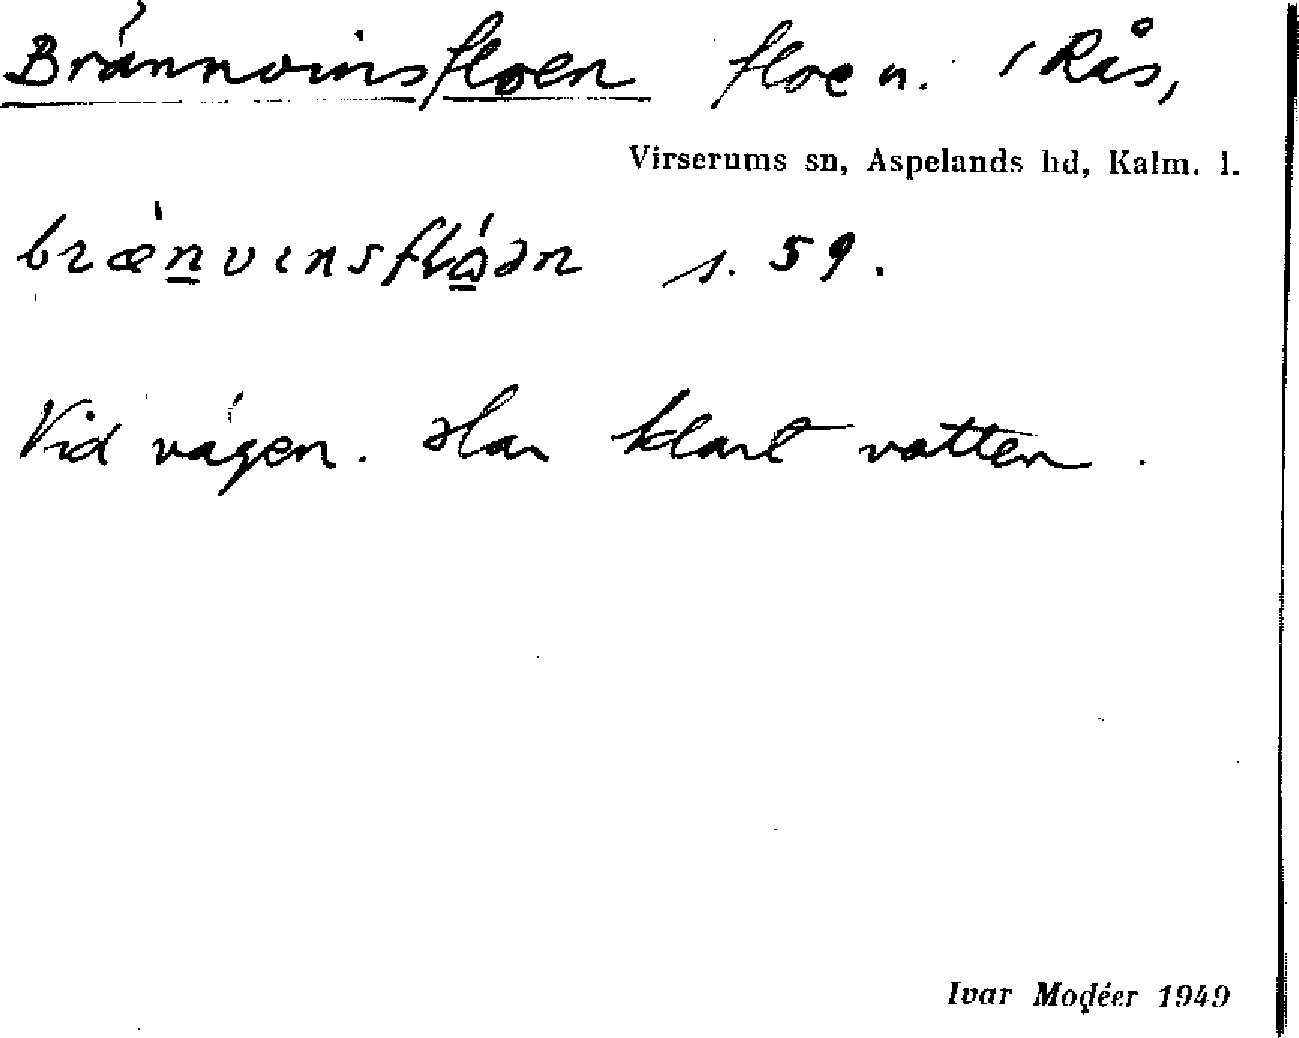 Brännvinsfloen floe n. i Rås,
Virserums sn, Aspelands hd, Kalm. l.
bræ̀nvinsflóən s. 59.
Vid vägen. Har klart vatten.
Ivar Modéer 1949